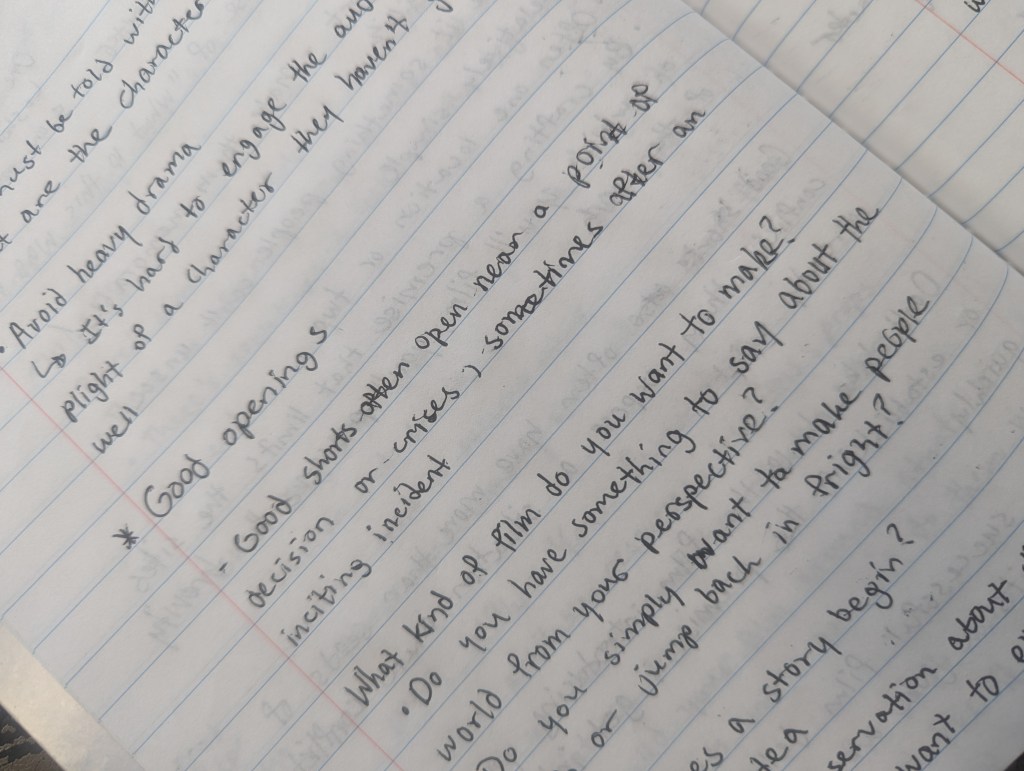 must be told with
are the character
• Avoid heavy drama
↳ It's hard to engage the
plight of a character they haven't
well
* Good openings
- Good shorts often open near a point of
decision or crises ; sometimes after an
inciting incident
What kind of film do you want to make?
• Do you have something to say about the
world from your perspective?
Do you simply want to make people
or jump back in fright?
a story begin?
about
want to